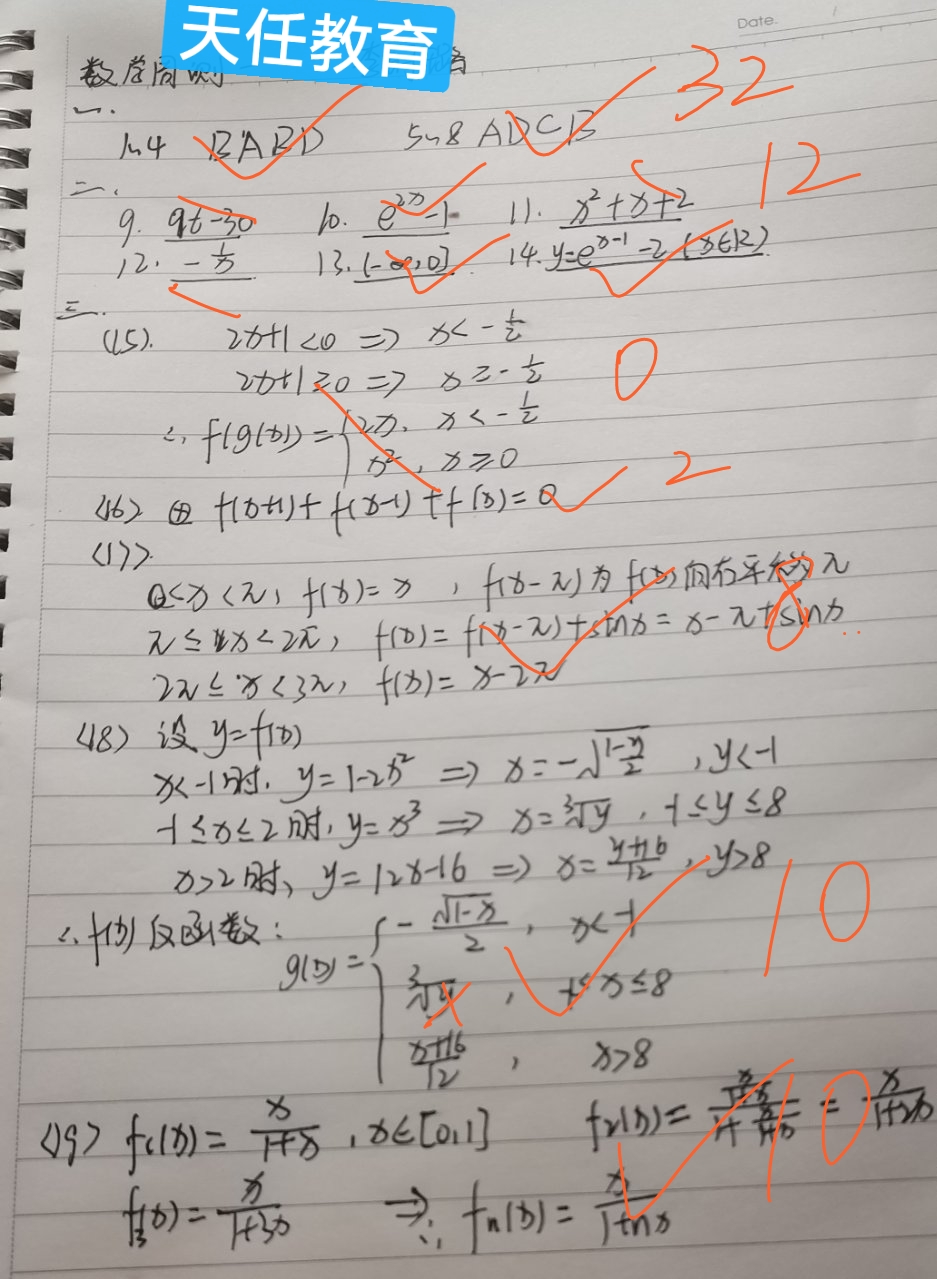 Date.
天任教育
数学周测
一.
1~4 BABD 5~8 ADCB
32
二.
12
9. 9t-30 10. e^{2x}-1 11. x²+x+2
12. -1/x 13. (-∞,0] 14. y=e^{x-1}-2 (x∈R)
三.
(15). 2x+1<0 ⇒ x<-1/2
2x+1≥0 ⇒ x≥-1/2
0
∴ f(g(x))={2x, x<-1/2
x², x≥0
2
(16) f(x+1)+f(x-1)+f(x)=0
(17)
0<x<π, f(x)=x, f(x-π)为f(x)向右平移π
π≤x<2π, f(x)=f(x-π)+sinx=x-π+sinx
8
2π≤x<3π, f(x)=x-2π
(18) 设y=f(x)
x<-1时, y=1-2x² ⇒ x=-√((1-y)/2), y<-1
-1≤x≤2时, y=x³ ⇒ x=∛y, -1≤y≤8
x>2时, y=12x-16 ⇒ x=(y+16)/12, y>8
10
∴f(x)反函数:
g(x)={-√(1-x)/2, x<-1
∛x, -1≤x≤8
(x+16)/12, x>8
10
(19) f₁(x)=x/(1+x), x∈[0,1] f₂(x)=(x/(1+x))/(1+x/(1+x))=x/(1+2x)
f₃(x)=x/(1+3x) ⇒∴ fₙ(x)=x/(1+nx)